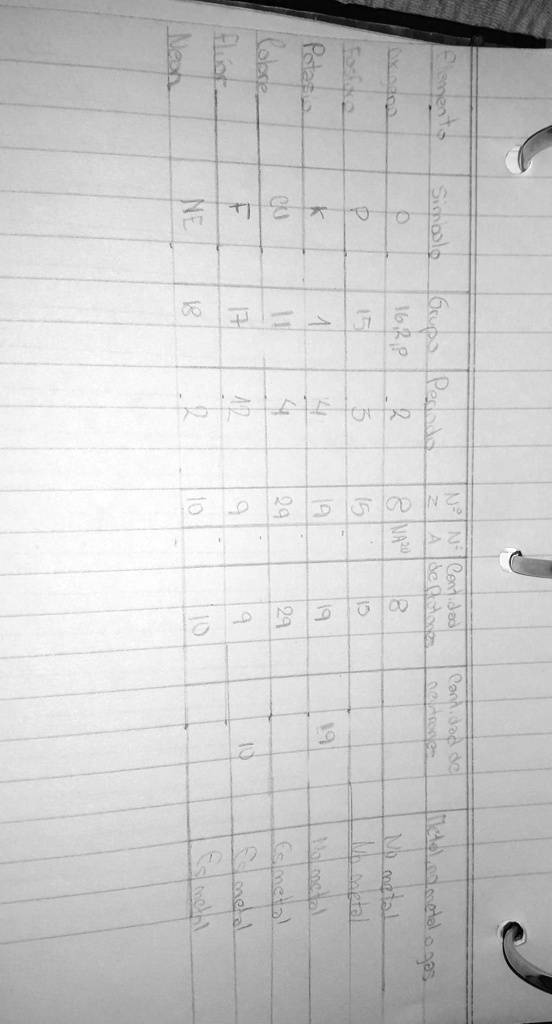 Elemento Simbolo Grupo Periodo N° Z N° A Cantidad de Protones Cantidad de neutrones Metal, no metal o gas
Oxigeno O 16,2,P 2 8 8 No metal
Fosforo P 15 3 15 15 No metal
Potasio K 1 4 19 19 19 No metal
Cobre CU 11 4 29 29 Es metal
Flúor F 17 12 9 9 10 Es metal
Neon NE 18 2 10 10 Es metal